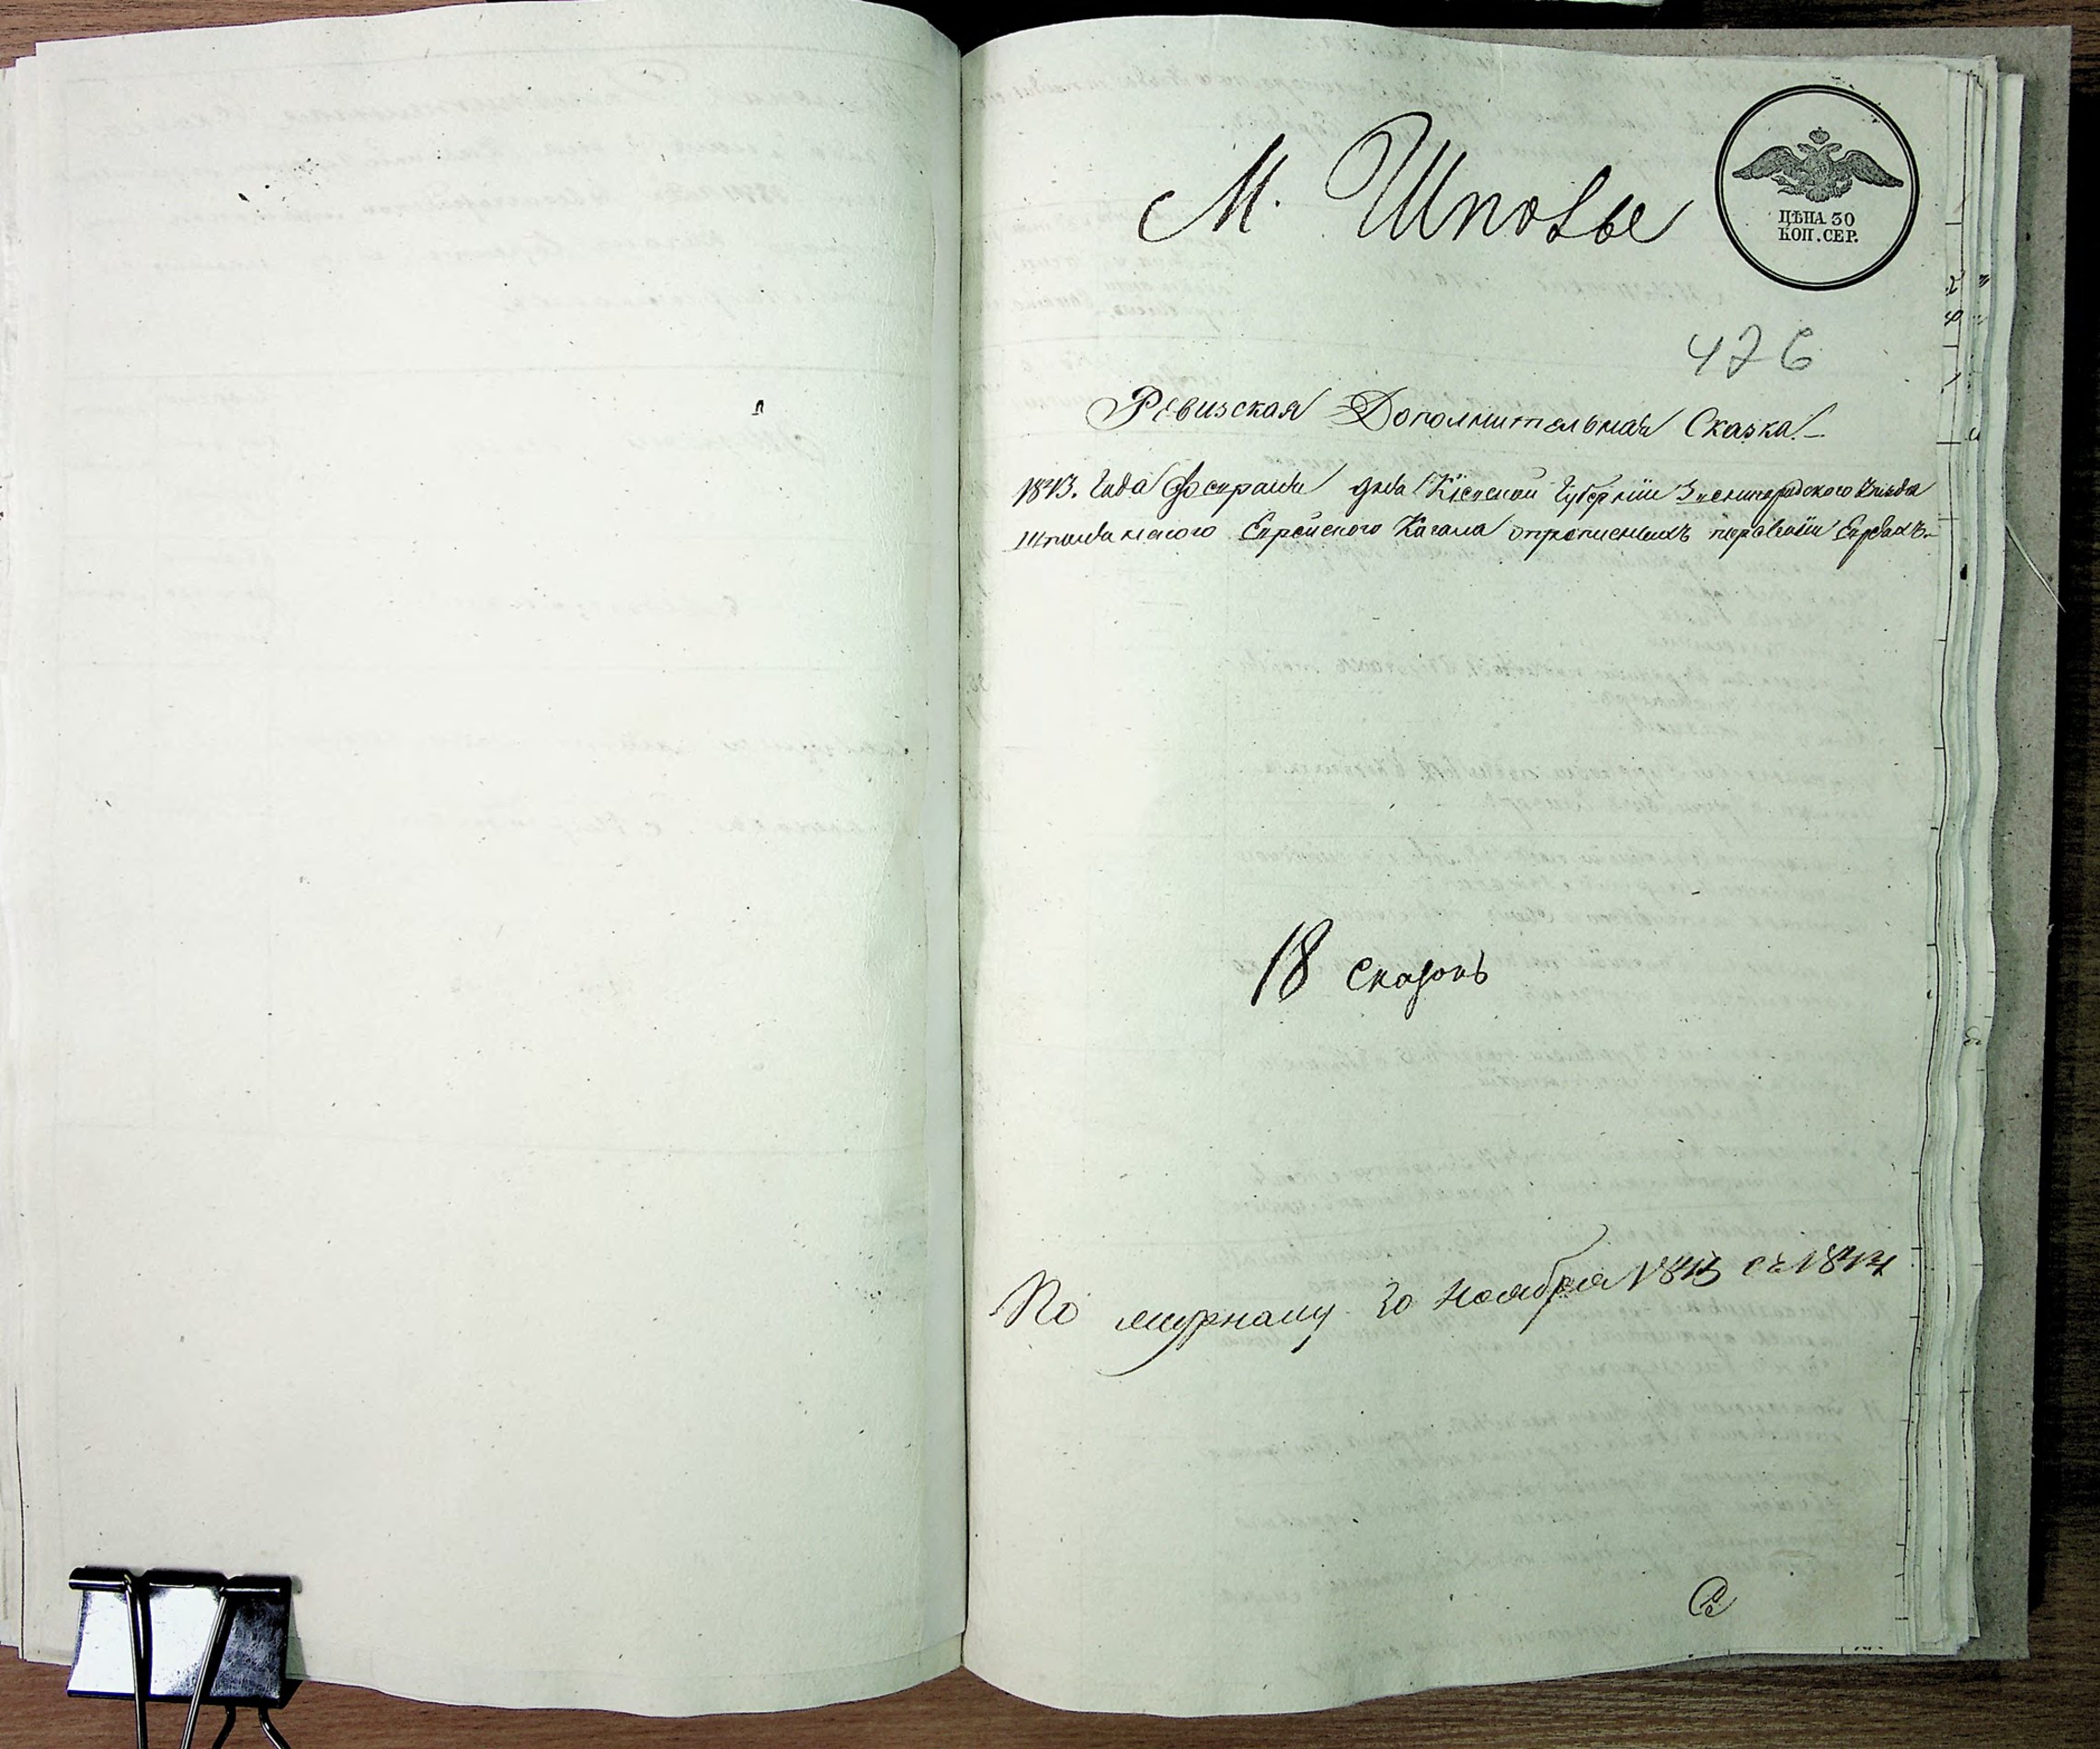 М. Шполы
ЦѢНА 30
КОП. СЕР.
426
Ревизская Дополнительная Сказка.
1843. Года Февраля дня Кіевской Губерніи Звенигородского Уѣзда
Шполянского Еврейского Кагала о прописныхъ Евреяхъ.
18 сказокъ
По журналу 30 Ноября 1843 съ 1844